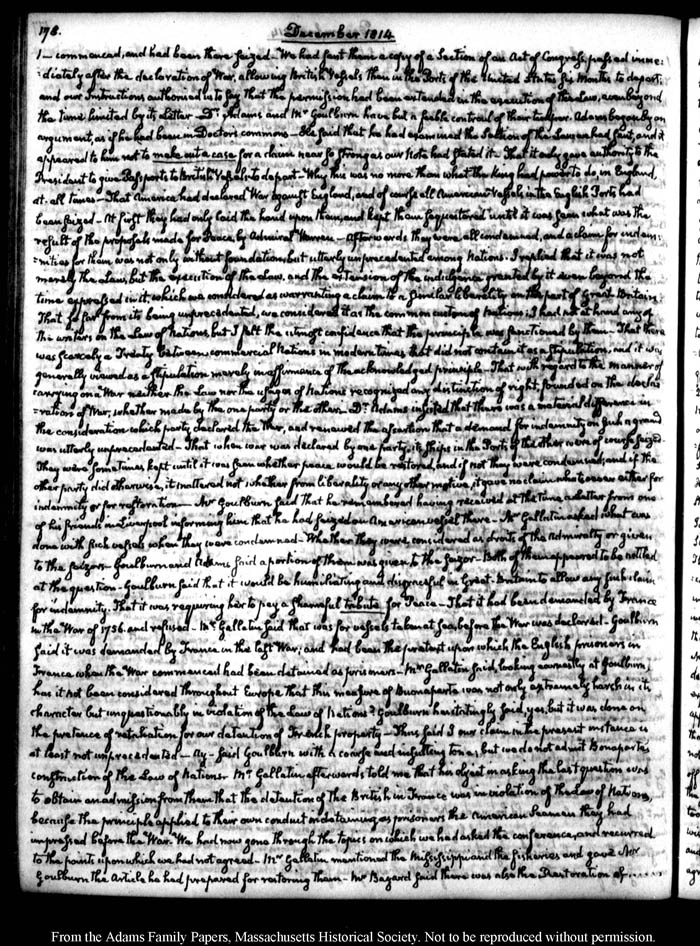 178.
December 1814
1— commenced, and had been there seized— We had sent them a copy of a Section of an Act of Congress, passed imme=
=diately after the declaration of War, allowing British Vessels then in the Ports of the United States six Months to depart;
and our Instructions authorised us to say that the permission had been extended in the execution of the Law, even beyond
the time limited by its Letter— Dr. Adams and Mr Goulburn have but a feeble controul of their tempers. Adams began by an
argument, as if he had been in Doctors commons— He said that he had examined the Section of the Law we had sent, and it
appeared to him not to make out a case for a claim near so strong as our Note had stated it— That it only gave authority to the
President to give Passports to British Vessels to depart— Why this was no more than what the King had power to do, in England,
at all times— That America had declared War against England, and of course all American Vessels in the English Ports had
been seized— At first they had only laid the hand upon them, and kept them sequestered until it was seen what was the
result of the proposals made for Peace, by Admiral Warren— Afterwards they were all condemned, and a claim for indem=
=nities for them was not only without foundation, but utterly unprecedented among Nations. I replied that it was not
merely the Law, but the execution of the Law, and the extension of the indulgence granted by it even beyond the
time expressed in it, which we considered as warranting a claim to a similar liberality on the part of Great Britain
That so far from its being unprecedented, we considered it as the common custom of Nations; I had not at hand any of
the writers on the Law of Nations, but I felt the utmost confidence that the principle was sanctioned by them— That there
was scarcely a Treaty between commercial Nations in modern times that did not contain it as a stipulation, and it was
generally viewed as a stipulation merely in affirmance of the acknowledged principle— That with regard to the manner of
carrying on a War neither the Law nor the usages of Nations recognized any distinction of right, founded on the decla=
=ration of War, whether made by the one party or the other— Dr. Adams insisted that there was a material difference in
the consideration which party declared the War, and renewed the assertion that a demand for indemnity on such a ground
was utterly unprecedented— That when war was declared by one party, its ships in the Ports of the other were of course seized
They were sometimes kept until it was seen whether peace would be restored, and if not they were condemned; and if the
other party did otherwise, it mattered not whether from liberality or any other motive, it gave no claim whatsoever either for
indemnity or for restoration— Mr Goulburn said that he remembered having received at the time, a letter from one
of his friends in Liverpool informing him that he had seized an American vessel there— Mr Gallatin asked what was
done with such vessels when they were condemned— Whether they were considered as droits of the Admiralty or given
to the seizors— Goulburn and Adams said a portion of them was given to the seizor— Both of them appeared to be nettled
at the question— Goulburn said that it would be humiliating and disgraceful in Great-Britain to allow any such claim
for indemnity. That it was requiring her to pay a shameful tribute for Peace— That it had been demanded by France
in the War of 1756. and refused— Mr Gallatin said that was for vessels taken at sea, before the War was declared— Goulburn
said it was demanded by France in this last War; and had been the pretext upon which the English prisoners in
France when the War commenced had been detained as prisoners— Mr Gallatin said, looking earnestly at Goulburn,
has it not been considered throughout Europe that this measure of Buonaparte was not only extremely harsh in its
character but unquestionably in violation of the Law of Nations? Goulburn hesitatingly said, yes, but it was done on
the pretence of retaliation for our detention of French property— Thus said I our claim in the present instance is
at least not unprecedented— Ay— said Goulburn with a coarse and insulting tone, but we do not admit Bonaparte's
construction of the Law of Nations— Mr Gallatin afterwards told me that his object in asking the last question was
to obtain an admission from them that the detention of the British in France was in violation of the Law of Nations,
because the principle applied to their own conduct in detaining as prisoners the American Seamen they had
impressed before the War. We had now gone through the topics on which we had asked the conference, and recurred
to the points upon which we had not agreed— Mr Gallatin mentioned the Mississippi and the fisheries and gave Mr
Goulburn the Article he had prepared for restoring them— Mr Bayard said there was also the Restoration of
From the Adams Family Papers, Massachusetts Historical Society. Not to be reproduced without permission.